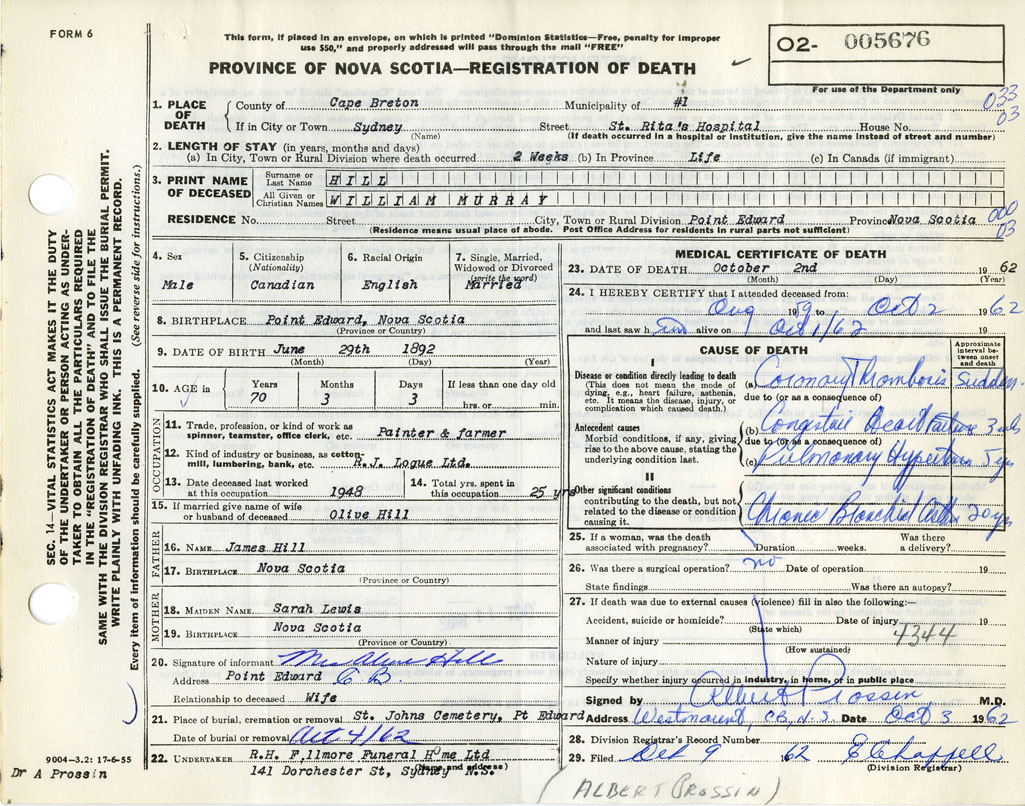 FORM 6
This form, if placed in an envelope, on which is printed "Dominion Statistics—Free, penalty for improper
use $50," and properly addressed will pass through the mail "FREE"
PROVINCE OF NOVA SCOTIA—REGISTRATION OF DEATH
02- 005676
For use of the Department only
033
03
1. PLACE OF DEATH County of Cape Breton Municipality of #1
If in City or Town Sydney Street St. Rita's Hospital House No.
(Name) (If death occurred in a hospital or institution, give the name instead of street and number)
2. LENGTH OF STAY (in years, months and days)
(a) In City, Town or Rural Division where death occurred 2 Weeks (b) In Province Life (c) In Canada (if immigrant)
3. PRINT NAME OF DECEASED Surname or Last Name HILL
All Given or Christian Names WILLIAM MURRAY
RESIDENCE No. Street City, Town or Rural Division Point Edward Province Nova Scotia
(Residence means usual place of abode. Post Office Address for residents in rural parts not sufficient)
000
03
4. Sex Male
5. Citizenship (Nationality) Canadian
6. Racial Origin English
7. Single, Married, Widowed or Divorced (write the word) Married
8. BIRTHPLACE Point Edward, Nova Scotia
(Province or Country)
9. DATE OF BIRTH June 29th 1892
(Month) (Day) (Year)
10. AGE in Years 70 Months 3 Days 3 If less than one day old hrs. or min.
OCCUPATION
11. Trade, profession, or kind of work as spinner, teamster, office clerk, etc. Painter & farmer
12. Kind of industry or business, as cotton-mill, lumbering, bank, etc. R.J. Logue Ltd.
13. Date deceased last worked at this occupation 1948
14. Total yrs. spent in this occupation 25 yrs
15. If married give name of wife or husband of deceased Olive Hill
FATHER
16. NAME James Hill
17. BIRTHPLACE Nova Scotia
(Province or Country)
MOTHER
18. MAIDEN NAME Sarah Lewis
19. BIRTHPLACE Nova Scotia
(Province or Country)
20. Signature of informant Mrs Hill
Address Point Edward C B.
Relationship to deceased Wife
21. Place of burial, cremation or removal St. Johns Cemetery, Pt Edward
Date of burial or removal Oct 4/62
22. UNDERTAKER R.H. Fillmore Funeral Home Ltd
141 Dorchester St, Sydney N.S.
(Name and address)
MEDICAL CERTIFICATE OF DEATH
23. DATE OF DEATH October 2nd 1962
(Month) (Day) (Year)
24. I HEREBY CERTIFY that I attended deceased from:
Aug 1959 to Oct 2 1962
and last saw him alive on Oct 1/62 19
CAUSE OF DEATH
Approximate interval between onset and death
I
Disease or condition directly leading to death
(This does not mean the mode of dying, e.g., heart failure, asthenia, etc. It means the disease, injury, or complication which caused death.)
(a) Coronary Thrombosis Sudden
due to (or as a consequence of)
Antecedent causes
Morbid conditions, if any, giving rise to the above cause, stating the underlying condition last.
(b) Congestive Heart Failure
due to (or as a consequence of)
(c) Pulmonary Hypertension
II
Other significant conditions
contributing to the death, but not related to the disease or condition causing it.
Chronic Bronchial 20 yrs
25. If a woman, was the death associated with pregnancy? Duration weeks. Was there a delivery?
26. Was there a surgical operation? no Date of operation 19
State findings Was there an autopsy?
27. If death was due to external causes (violence) fill in also the following:—
Accident, suicide or homicide? Date of injury 19
(State which)
4344
Manner of injury
(How sustained)
Nature of injury
Specify whether injury occurred in industry, in home, or in public place
Signed by Albert Prossin M.D.
Address Westmount, C.B., N.S. Date Oct 3 1962
28. Division Registrar's Record Number
29. Filed Oct 9 1962 E Chappell
(Division Registrar)
SEC. 14—VITAL STATISTICS ACT MAKES IT THE DUTY
OF THE UNDERTAKER OR PERSON ACTING AS UNDER-
TAKER TO OBTAIN ALL THE PARTICULARS REQUIRED
IN THE "REGISTRATION OF DEATH" AND TO FILE THE
SAME WITH THE DIVISION REGISTRAR WHO SHALL ISSUE THE BURIAL PERMIT.
WRITE PLAINLY WITH UNFADING INK. THIS IS A PERMANENT RECORD.
Every item of information should be carefully supplied. (See reverse side for instructions.)
9004—3.2: 17-6-55
Dr A Prossin
(ALBERT PROSSIN)